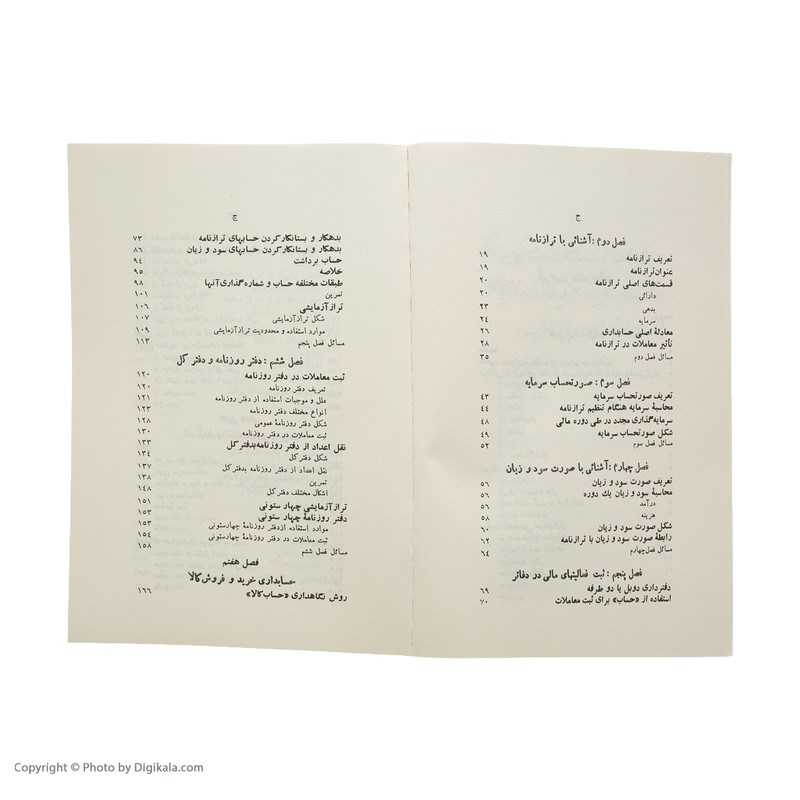 ح
فصل دوم : آشنائی با ترازنامه
تعریف ترازنامه ۱۹
عنوان ترازنامه ۱۹
قسمت‌های اصلی ترازنامه ۲۰
دارائی ۲۰
بدهی ۲۳
سرمایه ۲۴
معادلهٔ اصلی حسابداری ۲۶
تأثیر معاملات در ترازنامه ۲۸
مسائل فصل دوم ۳۵
فصل سوم : صورتحساب سرمایه
تعریف صورتحساب سرمایه ۴۳
محاسبهٔ سرمایه هنگام تنظیم ترازنامه ۴۴
سرمایه‌گذاری مجدد در طی دوره مالی ۴۸
شکل صورتحساب سرمایه ۴۹
مسائل فصل سوم ۵۲
فصل چهارم : آشنائی با صورت سود و زیان
تعریف صورت سود و زیان ۵۶
محاسبهٔ سود و زیان یك دوره ۵۶
درآمد ۵۶
هزینه ۵۸
شکل صورت سود و زیان ۶۰
رابطهٔ صورت سود و زیان با ترازنامه ۶۲
مسائل فصل چهارم ۶۴
فصل پنجم : ثبت فعالیتهای مالی در دفاتر
دفترداری دوبل یا دو طرفه ۶۹
استفاده از «حساب» برای ثبت معاملات ۷۰
چ
بدهکار و بستانکار کردن حسابهای ترازنامه ۷۳
بدهکار و بستانکار کردن حسابهای سود و زیان ۸۶
حساب برداشت ۹۴
خلاصه ۹۵
طبقات مختلفه حساب و شماره‌گذاری آنها ۹۸
تمرین ۱۰۱
ترازآزمایشی ۱۰۶
شکل ترازآزمایشی ۱۰۷
موارد استفاده و محدودیت ترازآزمایشی ۱۰۹
مسائل فصل پنجم ۱۱۳
فصل ششم : دفتر روزنامه و دفتر کل
ثبت معاملات در دفتر روزنامه ۱۲۰
تعریف دفتر روزنامه ۱۲۰
علل و موجبات استفاده از دفتر روزنامه ۱۲۱
انواع مختلف دفتر روزنامه ۱۲۳
شکل دفتر روزنامهٔ عمومی ۱۲۸
ثبت معاملات در دفتر روزنامه ۱۳۰
نقل اعداد از دفتر روزنامه بدفتر کل ۱۳۳
شکل دفتر کل ۱۳۴
نقل اعداد از دفتر روزنامه بدفتر کل ۱۳۷
تمرین ۱۳۸
اشکال مختلف دفتر کل ۱۴۸
ترازآزمایشی چهار ستونی ۱۵۱
دفتر روزنامهٔ چهار ستونی ۱۵۳
موارد استفاده ازدفتر روزنامهٔ چهارستونی ۱۵۳
ثبت معاملات در دفتر روزنامهٔ چهارستونی ۱۵۴
مسائل فصل ششم ۱۵۸
فصل هفتم
حسابداری خرید و فروش کالا
روش نگاهداری «حساب کالا» ۱۶۶
Copyright © Photo by Digikala.com